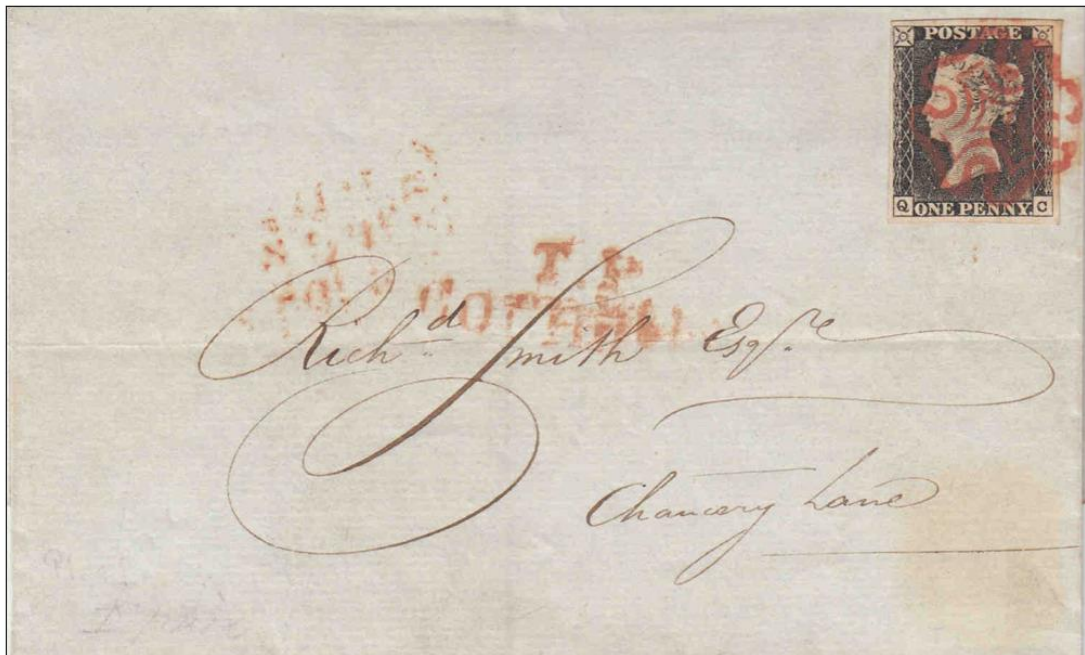 POSTAGE
Q ONE PENNY C
T.P
Rich.d Smith Esqre
Chancery Lane